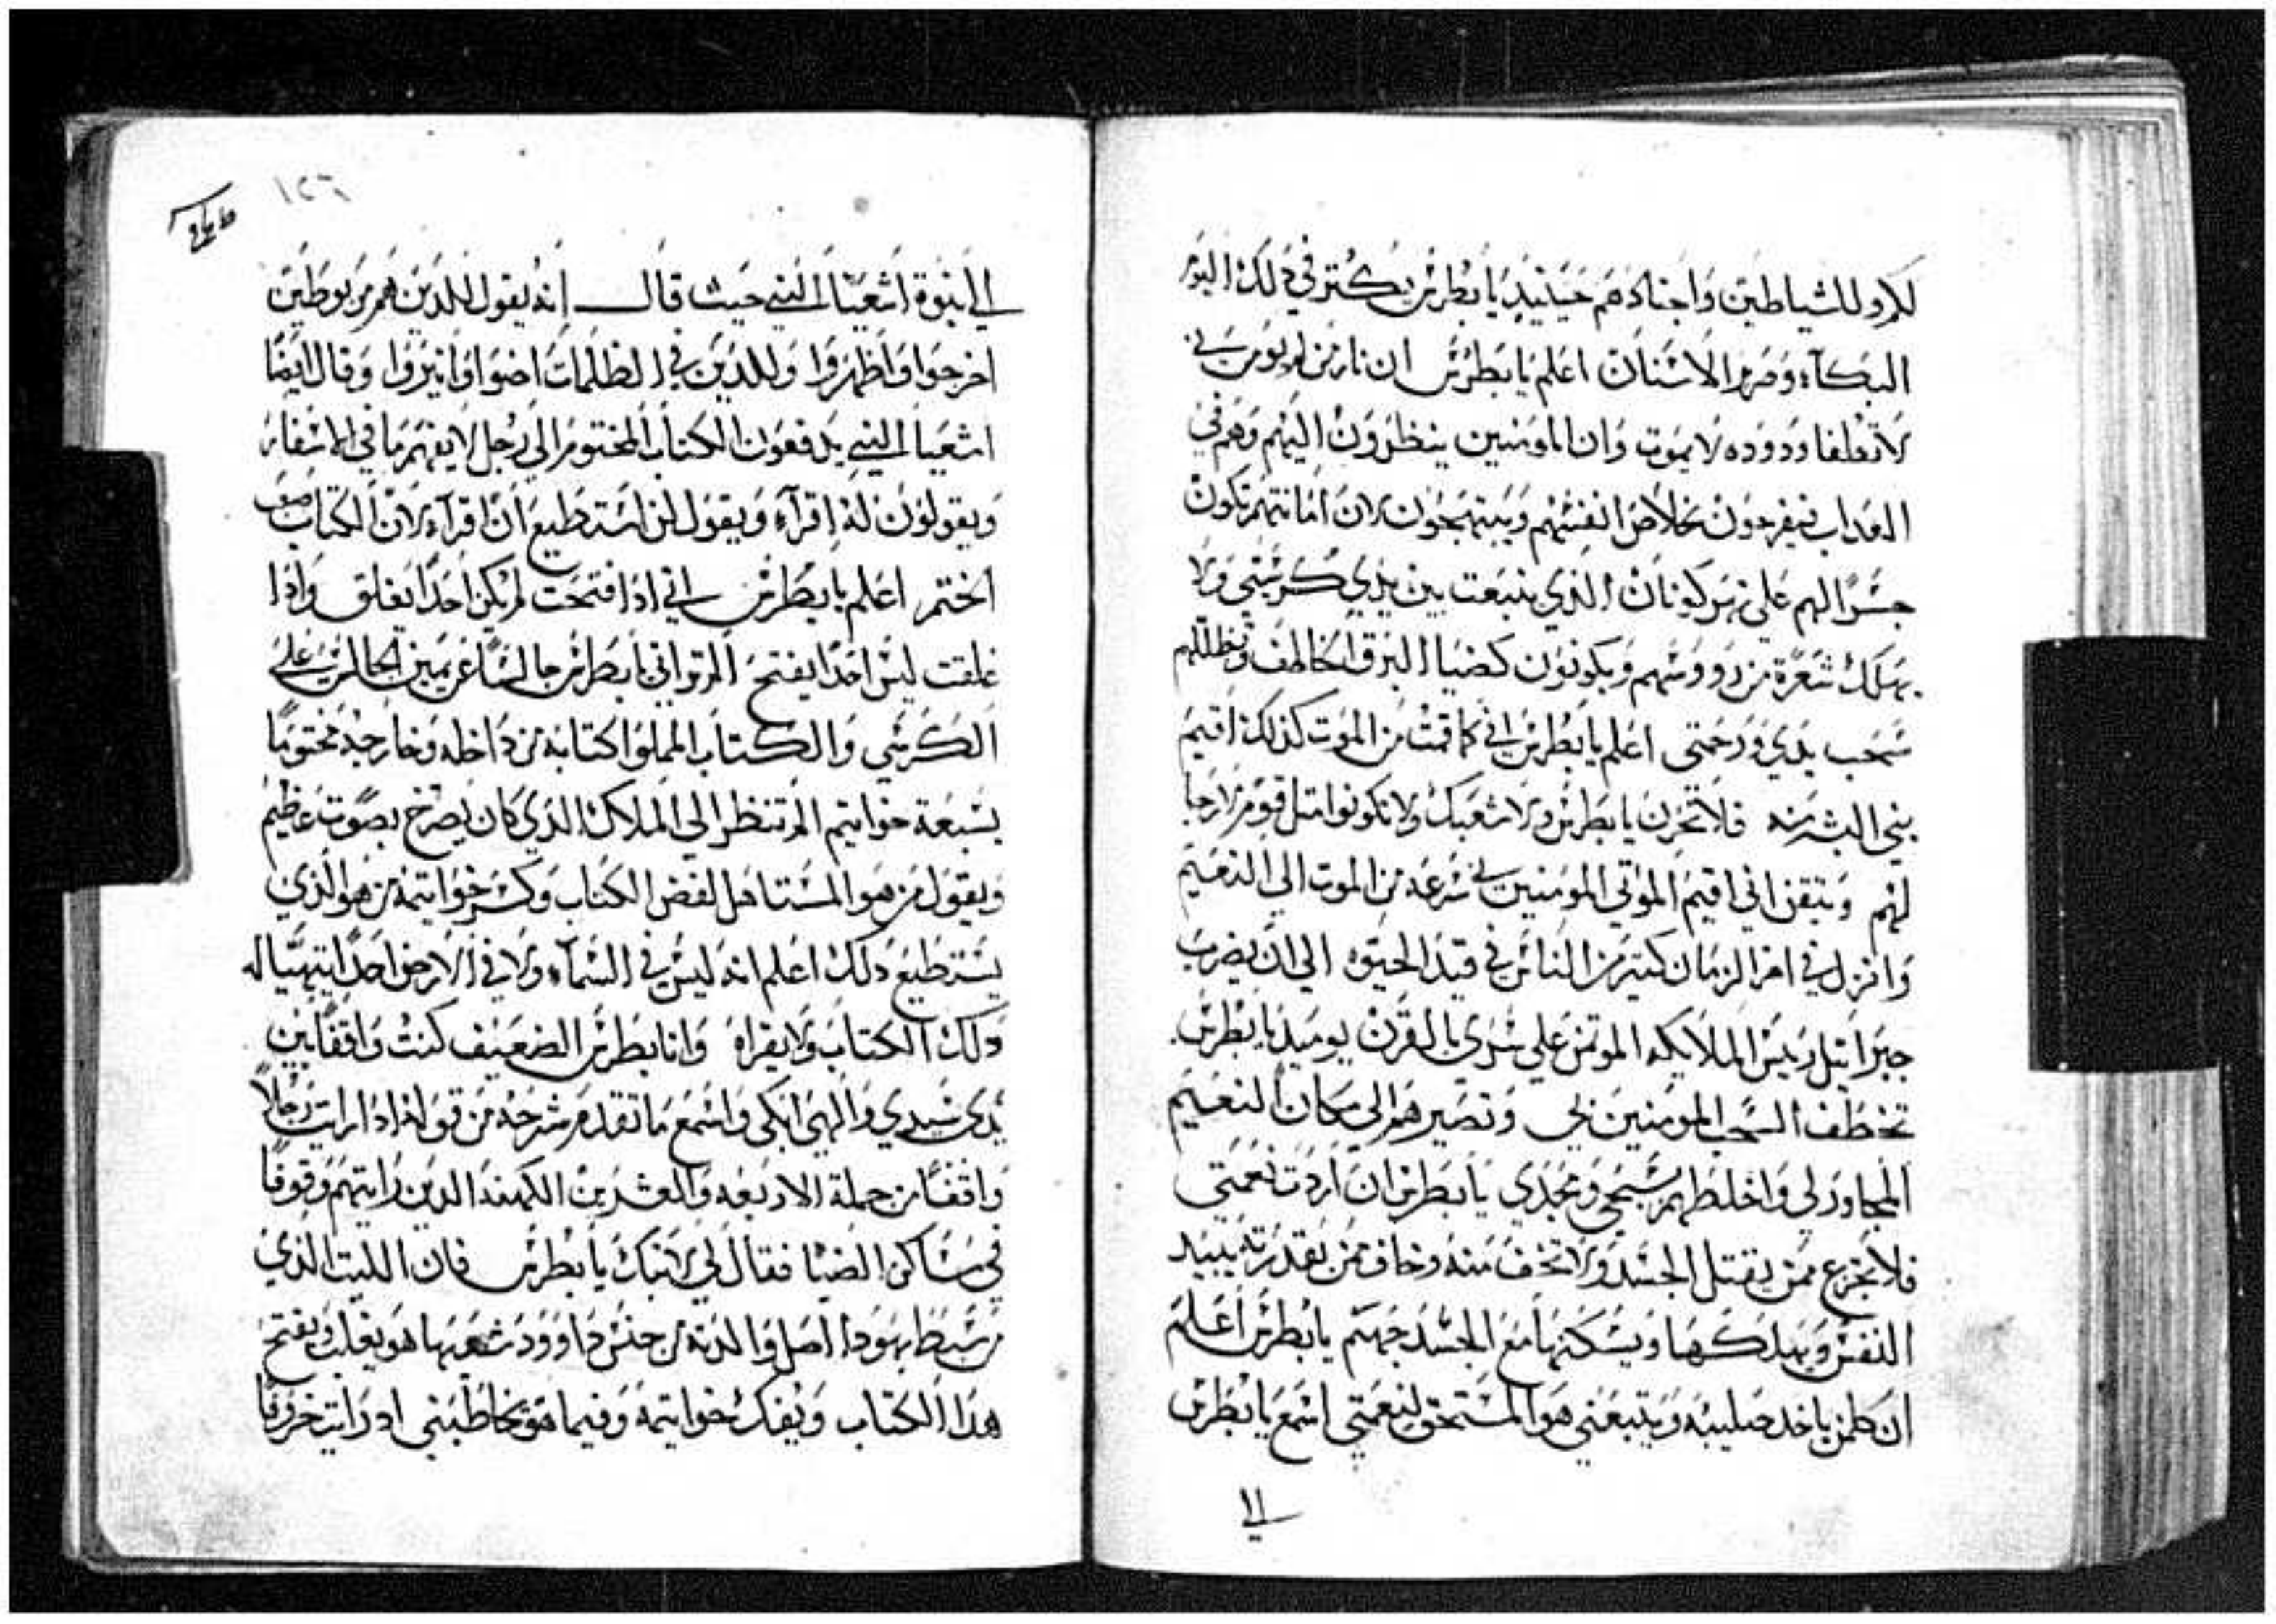 للاولا للشياطين واجنادهم حينيد يا بطرس يكتر في دلك اليوم
البكاء وصرير الاسنان اعلم يا بطرس ان نار من لم يومن بي
لا تطفا ودوده لا يموت وان المومنين ينظرون اليهم وهم في
العداب فيفرحون بخلاص انفسهم ويبتهجون لان امانتهم تكون
جسرا لهم علي نهر كونان الذي ينبعت بين يدي كرسيي ولا
يهلك شعرة من رووسهم ويكونون كضيا البرق الخاطف وتظللهم
سحب يدي ورحمتي اعلم يا بطرس اني كما قمت من الموت كذلك اقيم
بني البشر منه فلا تحزن يا بطرس ولا شعبك ولا تكونوا متل قوم لا رجا
لهم وتيقن اني اقيم الموتي المومنين بي سرعه من الموت الي النعيم
وانزل في اخر الزمان كتير من الناس في قيد الحيوه الي ان يضرب
جبراييل رييس الملايكه الموتمن علي سري بالقرن يوميد يا بطرس
تخطف السحب المومنين بي وتصيرهم الي مكان النعيم
المجاور لي واخلطهم بسبحي ومجدي يا بطرس ان اردت نعمتي
فلا تجزع ممن يقتل الجسد ولا تخف منه وخاف ممن يقدر ته يبيد
النفس ويهلكها ويسكنها مع الجسد جهنم يا بطرس اعلم
ان كلمن ياخد صليبه ويتبعني هو المستحق لنعمتي اسمع يا بطرس
الي
١٢٦
الي نبوة اشعيا النبي حيث قال انه يقول للدين هم مربوطين
اخرجوا واظهروا وللدين في الظلمات اضوا وانيروا وقال ايضا
اشعيا النبي يدفعون الكتاب المختوم الي رجل لا يفهم ما في الاسفار
ويقولون له اقراه ويقول لن استطيع ان اقراه لان الكتاب صعب
الختم اعلم يا بطرس اني ادا فتحت لم يكن احدا يغلق وادا
غلقت ليس احدا يفتح الم تراني يا بطرس جالسا عن يمين الجالس علي
الكرسي والكتاب المملوا كتابة من داخله وخارجه مختوما
بسبعة خواتيم الم تنظر الي الملاك الدي كان يصرخ بصوت عظيم
ويقول من هو المستاهل لفض الكتاب وكسر خواتيمه من هو الذي
يستطيع دلك اعلم انه ليس في السماء ولا في الارض احدا يتهيا له
دلك الكتاب ولا يقراه وانا بطرس الضعيف كنت واقفا بين
يدي سيدي والهي ابكي واسمع ما تقدم شرحه من قوله ادا رايت رجلا
واقفا من جملة الاربعه والعشرين الكهنه الدين رايتهم وقوفا
في مساكن الضيا فقال لي لا تبك يا بطرس فان الليت الذي
من سبط يهودا اصل والدته من جنس داوود شعبها هو يغلب ويفتح
هدا الكتاب ويفك خواتيمه وفيما هو يخاطبني اد رايت خروفا